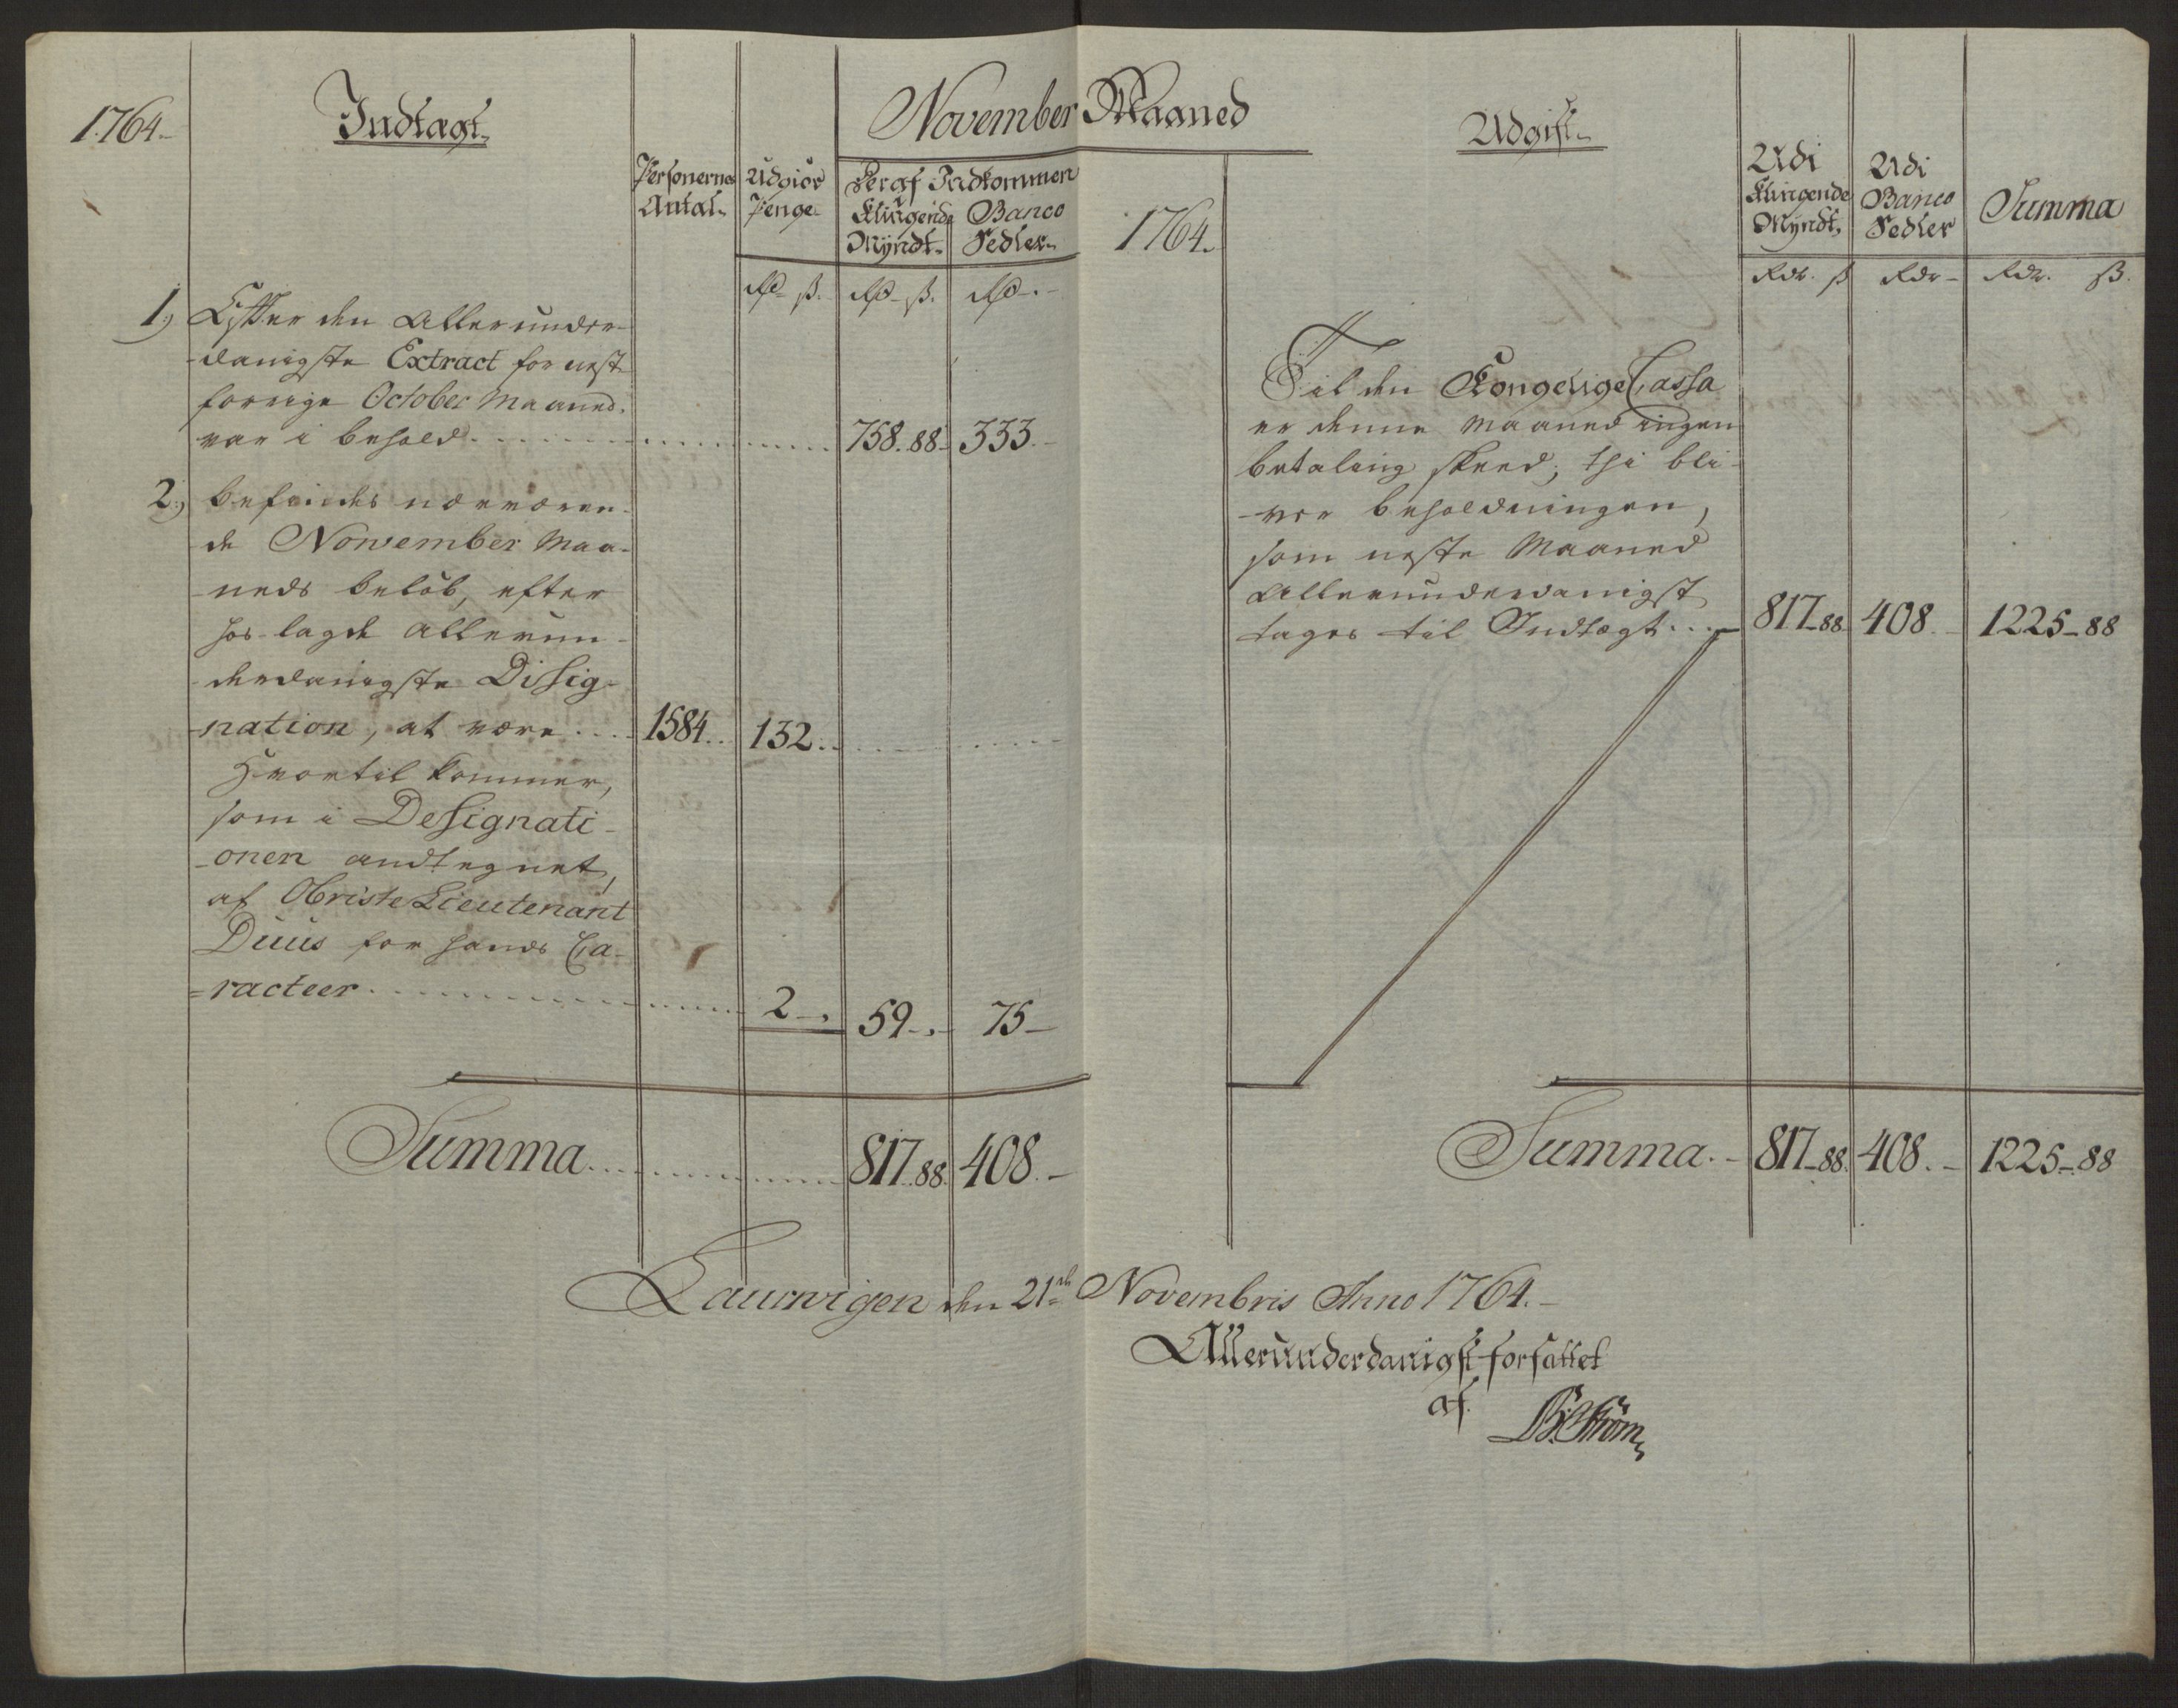 1764.
Indtægt.
November Maaned
Personernes Antal.
Udgiør Penge
Heraf Indkommen
Klingende Myndt.
Banco Sedler.
Rd. ß.
Rd. ß.
Rd.
1.) Efter den Allerunder-
danigste Extract for nest
forrige October Maaned.
var i behold . . . 758. 88. 333.
2.) Befindes nærværen-
de Nowember Maa-
neds beløb, efter
hos-lagde allerun-
derdanigste Dissig-
nation, at være . . . 1584. 132.
Hvortil kommer,
som i Designati-
onen andtegnet,
af Obriste Lieutenant
Duus for hands Ca-
racteer . . . 2. 59. 75
Summa . . . 817. 88. 408.
1764.
Udgift.
Udi Klingende Myndt.
Udi Banco Sedler
Summa
Rdr. ß
Rdr
Rdr. ß.
Til den Kongelige Cassa
er denne Maaned ingen
betaling skeed; thi bli-
ver beholdningen,
som neste Maaned
Allerunderdanigst
tages til Indtægt . . . 817. 88. 408. 1225. 88
Summa. 817. 88. 408. 1225. 88
Laurwigen den 21de Novembris Anno 1764.
Allerunderdanigst forfattet
af.